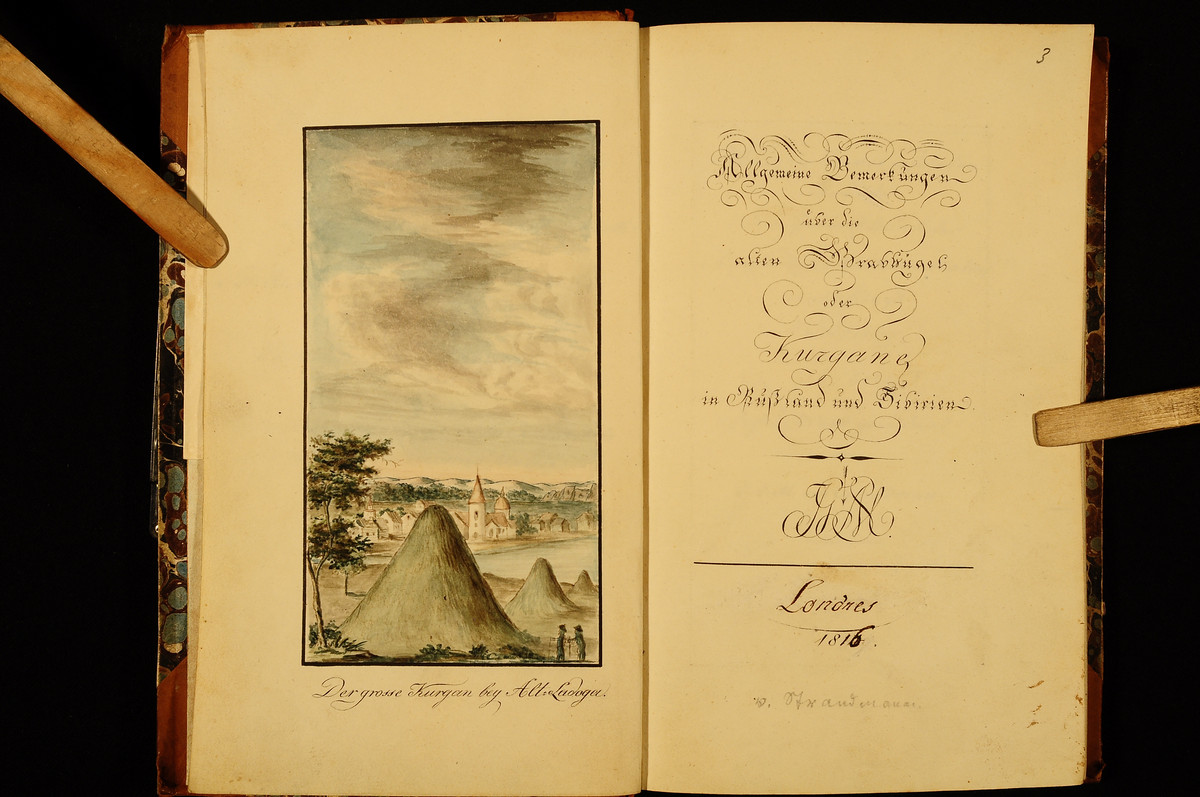 Der grosse Kurgan bey Alt-Ladoga.
3
Allgemeine Bemerkungen
über die
alten Grabhügel
oder
Kurgane
in Rußland und Sibirien
Londres
1816.
v. Strandmann